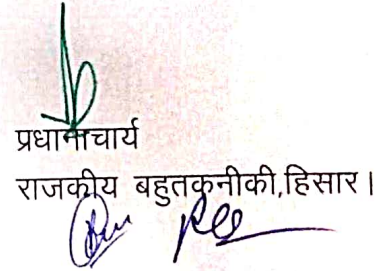 प्रधानाचार्य
राजकीय बहुतकनीकी,हिसार।